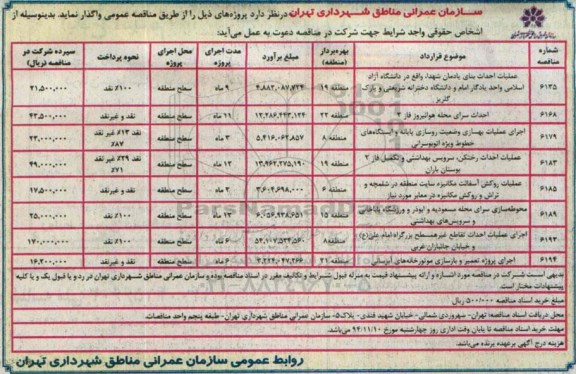 سازمان عمرانی مناطق شهرداری تهران درنظر دارد پروژه‌های ذیل را از طریق مناقصه عمومی واگذار نماید. بدینوسیله از
اشخاص حقوقی واجد شرایط جهت شرکت در مناقصه دعوت به عمل می‌آید:
شماره مناقصه | موضوع قرارداد | بهره‌بردار (منطقه) | مبلغ برآورد | مدت اجرای پروژه | محل اجرای پروژه | نحوه پرداخت | سپرده شرکت در مناقصه (ریال)
۶۱۳۵ | عملیات احداث بنای یادمان شهدا، واقع در دانشگاه آزاد اسلامی واحد یادگار امام و دانشگاه دخترانه شریعتی و پارک گلریز | منطقه ۱۹ | ۴,۸۸۲,۰۸۷,۷۲۴ | ۹ ماه | سطح منطقه | ۱۰۰٪ نقد | ۲۱,۵۰۰,۰۰۰
۶۱۶۸ | احداث سرای محله هوانیروز فاز ۳ | منطقه ۲۲ | ۱۲,۲۸۶,۴۴۳,۱۲۴ | ۱۱ ماه | سطح منطقه | نقد و غیر نقد | ۴۳,۵۰۰,۰۰۰
۶۱۷۹ | اجرای عملیات بهسازی وضعیت روسازی پایانه و ایستگاههای خطوط ویژه اتوبوسرانی | منطقه ۸ | ۵,۴۱۶,۰۶۲,۸۵۷ | ۳ ماه | سطح منطقه | نقد ۱۳٪ غیر نقد ۸۷٪ | ۲۳,۰۰۰,۰۰۰
۶۱۸۳ | عملیات احداث رختکن، سرویس بهداشتی و تکمیل فاز ۲ بوستان باران | منطقه ۱۹ | ۱۳,۹۶۲,۲۷۵,۱۹۰ | ۱۲ ماه | سطح منطقه | نقد ۲۹٪ غیر نقد ۷۱٪ | ۴۹,۰۰۰,۰۰۰
۶۱۸۵ | عملیات روکش آسفالت مکانیزه سایت منطقه در شلمچه و تراش و روکش مکانیزه در معابر مورد نیاز | منطقه ۶ | ۳,۶۰۴,۶۹۸,۰۰۰ | ۳ ماه | سطح منطقه | نقد و غیرنقد | ۱۷,۵۰۰,۰۰۰
۶۱۸۹ | محوطه‌سازی سرای محله مسعودیه و ابوذر و ورزشگاه باباجانی و سرویس‌های بهداشتی | منطقه ۱۵ | ۶,۰۵۶,۹۳۸,۶۵۱ | ۱۲ ماه | سطح منطقه | ۱۰۰٪ نقد | ۲۵,۰۰۰,۰۰۰
۶۱۹۳ | اجرای عملیات احداث تقاطع غیرهمسطح بزرگراه امام علی(ع) و خیابان جانبازان غربی | منطقه ۸ | ۵۲,۱۰۷,۵۳۴,۵۶۰ | ۶ ماه | سطح منطقه | نقد و غیرنقد | ۱۷۰,۰۰۰,۰۰۰
۶۱۹۴ | اجرای پروژه تعمیر و بازسازی موتورخانه‌های آبرسانی | منطقه ۲۱ | ۳,۲۲۴,۰۴۷,۲۶۶ | ۶ ماه | سطح منطقه | نقد و غیرنقد | ۱۶,۲۰۰,۰۰۰
بدیهی است شرکت در مناقصه مورد اشاره و ارائه پیشنهاد قیمت به منزله قبول شرایط و تکالیف مقرر در اسناد مناقصه بوده و سازمان عمرانی مناطق شهرداری تهران در رد و یا قبول یک و یا کلیه
پیشنهادات مختار است.
مبلغ خرید اسناد مناقصه ۵۰۰/۰۰۰ ریال
محل دریافت اسناد مناقصه: تهران- سهروردی شمالی- خیابان شهید قندی- پلاک۵- سازمان عمرانی مناطق شهرداری تهران- طبقه پنجم واحد مناقصات.
مهلت خرید اسناد مناقصه تا پایان وقت اداری روز چهارشنبه مورخ ۹۴/۱۱/۱۰ می‌باشد.
هزینه درج آگهی برعهده برنده می‌باشد.
روابط عمومی سازمان عمرانی مناطق شهرداری تهران